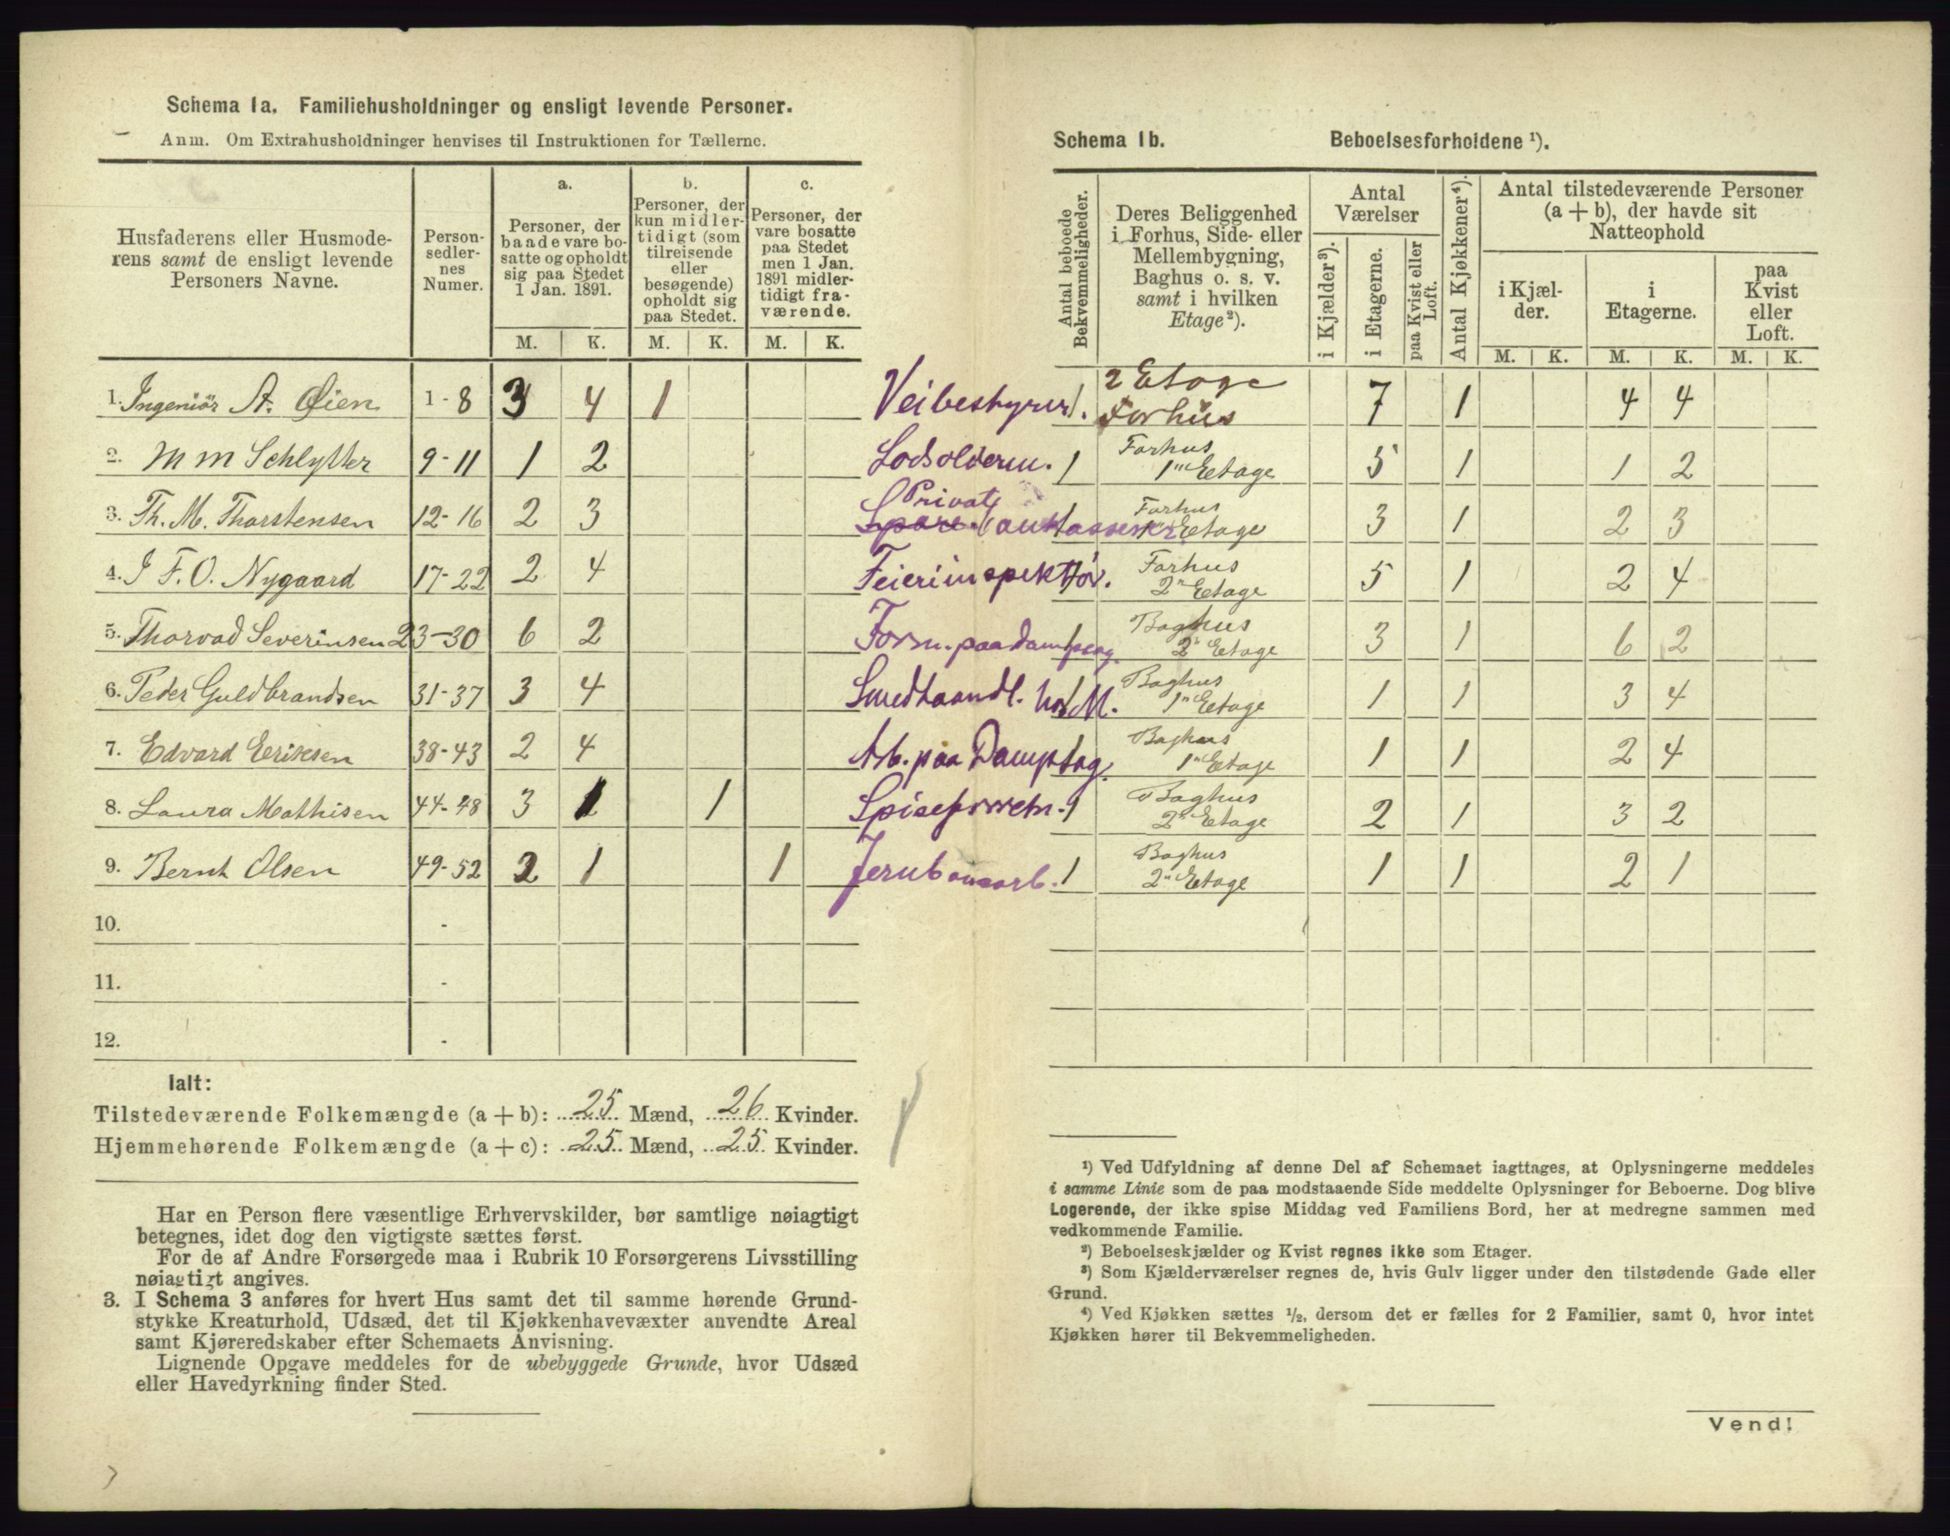 Schema 1a. Familiehusholdninger og ensligt levende Personer.
Anm. Om Extrahusholdninger henvises til Instruktionen for Tællerne.
Husfaderens eller Husmode-
rens samt de ensligt levende
Personers Navne.
Person-
sedler-
nes
Numer.
a.
Personer, der
baade vare bo-
satte og opholdt
sig paa Stedet
1 Jan. 1891.
b.
Personer, der
kun midler-
tidigt (som
tilreisende
eller
besøgende)
opholdt sig
paa Stedet.
c.
Personer, der
vare bosatte
paa Stedet
men 1 Jan.
1891 midler-
tidigt fra-
værende.
M. K. M. K. M. K.
1. Ingeniör A. Øien 1-8 3 4 1
2. M M Schlytter 9-11 1 2
3. Th. M. Thorstensen 12-16 2 3
4. J F. O. Nygaard 17-22 2 4
5. Thorvad Severinsen 23-30 6 2
6. Peder Guldbrandsen 31-37 3 4
7. Edvard Eriksen 38-43 2 4
8. Laura Mathisen 44-48 3 1 1
9. Bernt Olsen 49-52 2 1 1
10. -
11. -
12. -
Ialt:
Tilstedeværende Folkemængde (a + b): 25 Mænd, 26 Kvinder.
Hjemmehørende Folkemængde (a + c): 25 Mænd, 25 Kvinder.
Har en Person flere væsentlige Erhvervskilder, bør samtlige nøiagtigt
betegnes, idet dog den vigtigste sættes først.
For de af Andre Forsørgede maa i Rubrik 10 Forsørgerens Livsstilling
nøiagtigt angives.
3. I Schema 3 anføres for hvert Hus samt det til samme hørende Grund-
stykke Kreaturhold, Udsæd, det til Kjøkkenhavevæxter anvendte Areal
samt Kjøreredskaber efter Schemaets Anvisning.
Lignende Opgave meddeles for de ubebyggede Grunde, hvor Udsæd
eller Havedyrkning finder Sted.
Schema 1b. Beboelsesforholdene ¹).
Antal beboede
Bekvemmeligheder.
Deres Beliggenhed
i Forhus, Side- eller
Mellembygning,
Baghus o. s. v.
samt i hvilken
Etage²).
Antal
Værelser
i Kjælder³).
i Etagerne.
paa Kvist eller
Loft.
Antal Kjøkkener⁴).
Antal tilstedeværende Personer
(a + b), der havde sit
Natteophold
i Kjæl-
der.
i
Etagerne.
paa
Kvist
eller
Loft.
M. K. M. K. M. K.
Veibestyrer 1. 2 Etage
Forhus 7 1 4 4
Lodsolderm. 1 Forhus
1ⁿ Etage 5 1 1 2
Privat
Spare 1 Forhus
1ⁿ Etage 3 1 2 3
Feierinspektør. Forhus
2ⁿ Etage 5 1 2 4
Form. paa Dampsag. 1 Baghus
2ⁿ Etage 3 1 6 2
Smedhaandl. 1 Baghus
1ⁿ Etage 1 1 3 4
Arb. paa Dampsag. 1 Baghus
1ⁿ Etage 1 1 2 4
1 Baghus
2ⁿ Etage 2 1 3 2
Jernbanearb. 1 Baghus
2ⁿ Etage 1 1 2 1
¹) Ved Udfyldning af denne Del af Schemaet iagttages, at Oplysningerne meddeles
i samme Linie som de paa modstaaende Side meddelte Oplysninger for Beboerne. Dog blive
Logerende, der ikke spise Middag ved Familiens Bord, her at medregne sammen med
vedkommende Familie.
²) Beboelseskjælder og Kvist regnes ikke som Etager.
³) Som Kjælderværelser regnes de, hvis Gulv ligger under den tilstødende Gade eller
Grund.
⁴) Ved Kjøkken sættes ½, dersom det er fælles for 2 Familier, samt 0, hvor intet
Kjøkken hører til Bekvemmeligheden.
Vend!